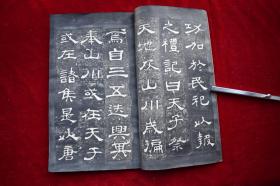 功加於民祀以報
之禮記曰天子祭
天地及山川歲徧
焉自三五迭興其
奉山川或在天子
或在諸侯是以唐